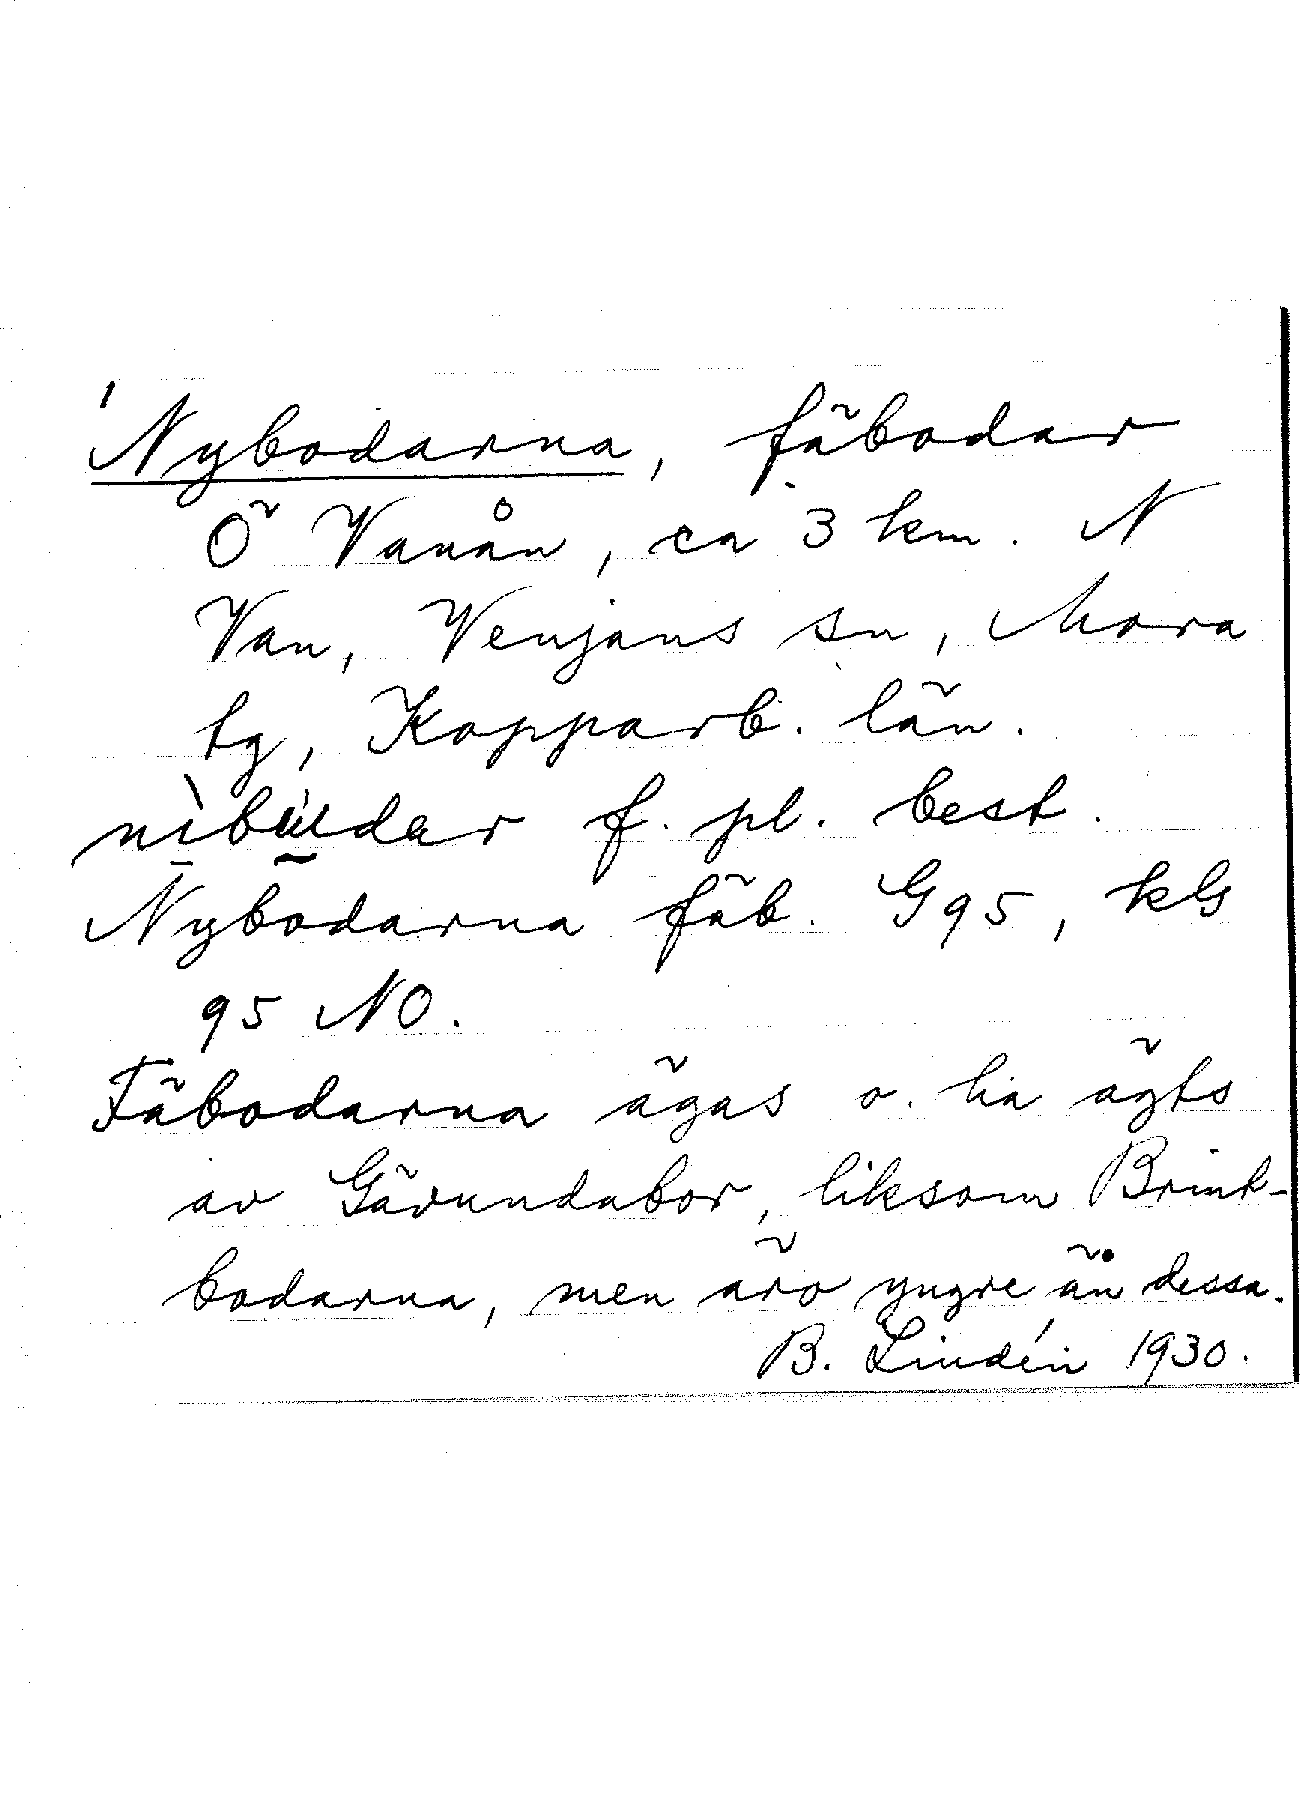 Nybodarna, fäbodar
Ö Vanån, ca 3 km. N
Van, Venjans sn, Mora
tg, Kopparb. län.
f. pl. best.
Nybodarna fäb. G95, kG
95 NO.
Fäbodarna ägas o. ha ägts
av Gävundabor, liksom Brint-
bodarna, men äro yngre än dessa.
B. Lindén 1930.